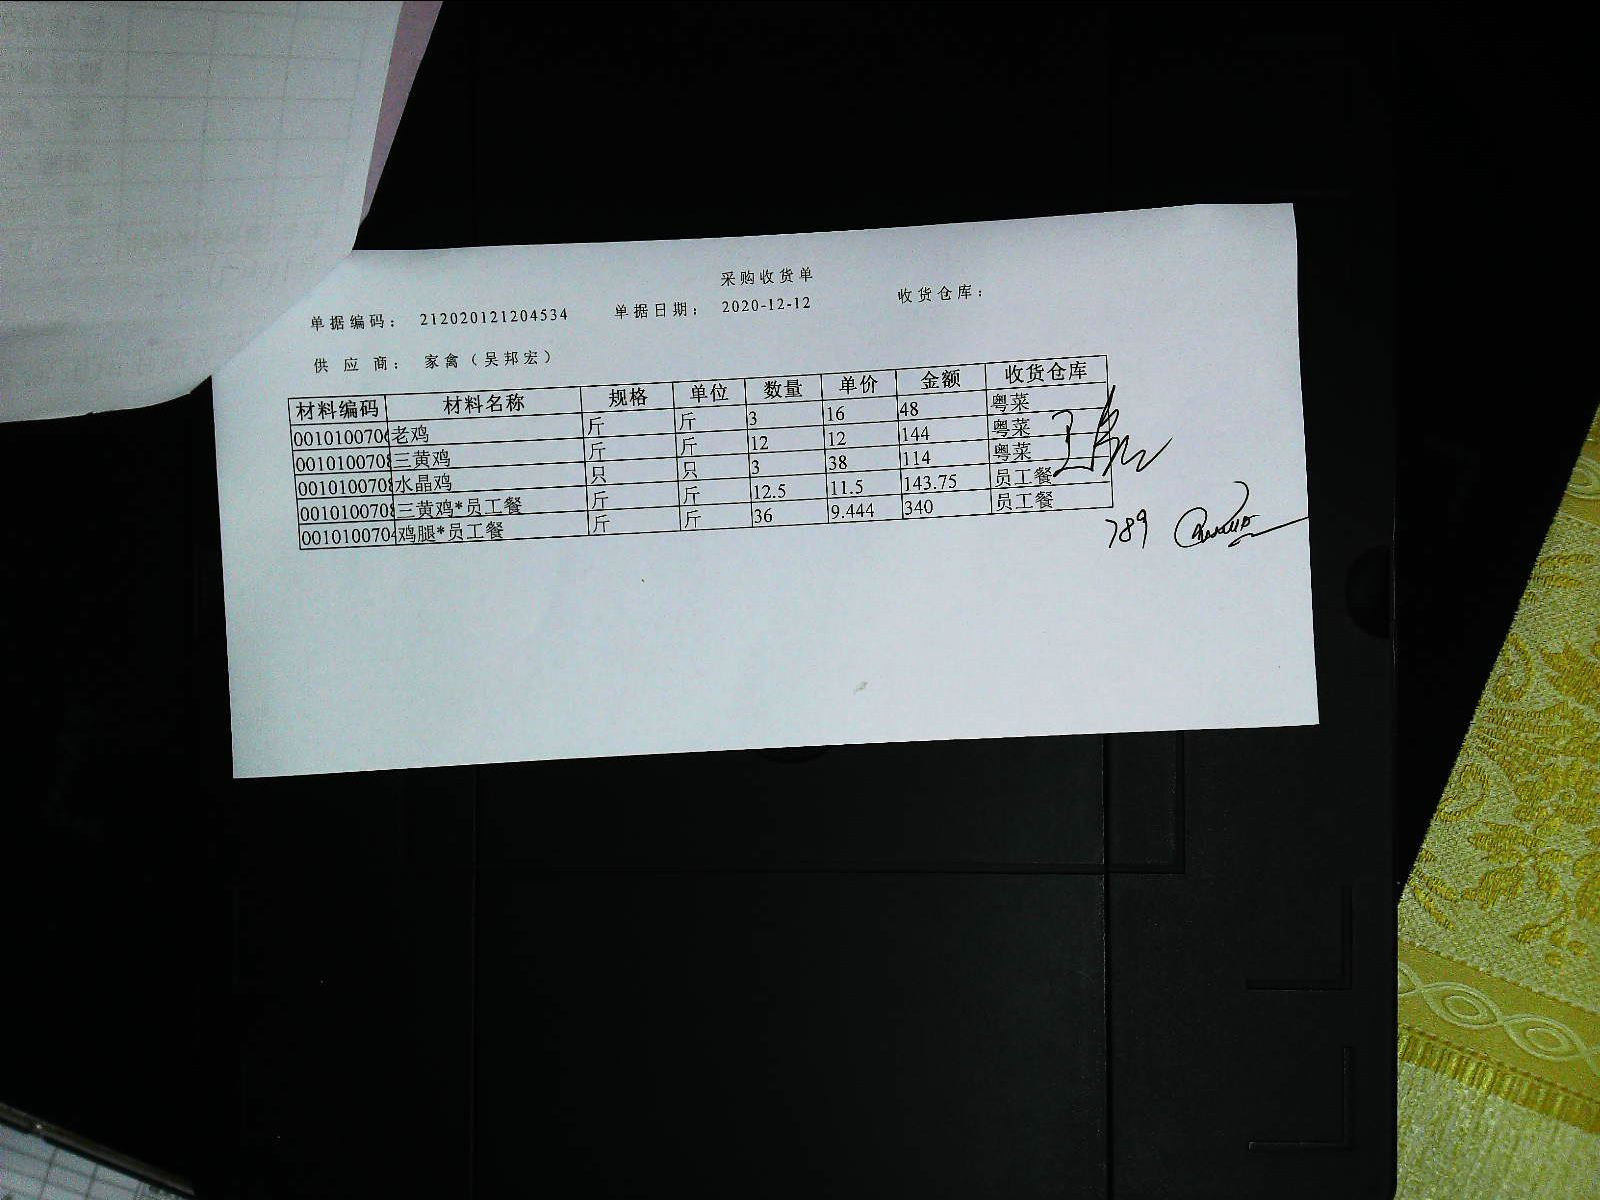 采购收货单
单据编码： 212020121204534 单据日期： 2020-12-12 收货仓库：
供 应 商： 家禽（吴邦宏）
材料编码 材料名称 规格 单位 数量 单价 金额 收货仓库
0010100706 老鸡 斤 斤 3 16 48 粤菜
0010100708 三黄鸡 斤 斤 12 12 144 粤菜
0010100708 水晶鸡 只 只 3 38 114 粤菜
0010100708 三黄鸡*员工餐 斤 斤 12.5 11.5 143.75 员工餐
0010100704 鸡腿*员工餐 斤 斤 36 9.444 340 员工餐
789